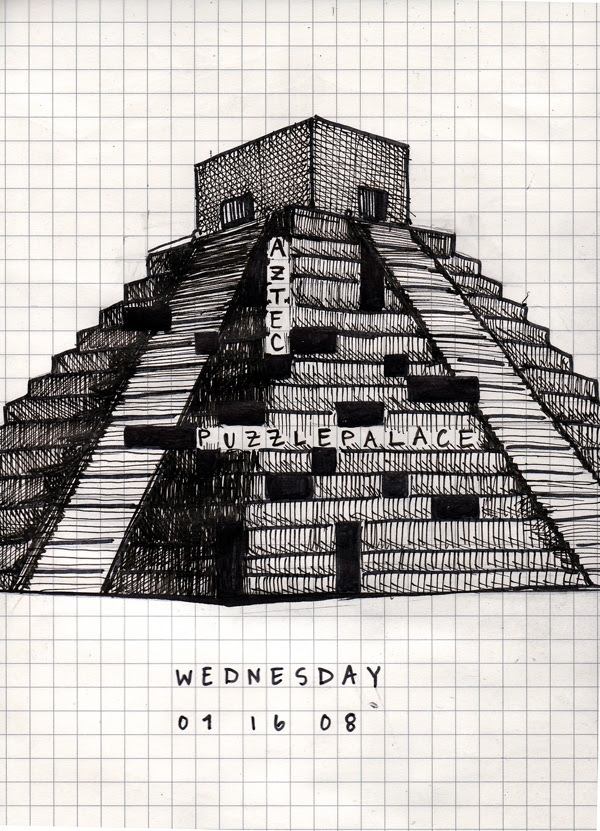 AZTEC
PUZZLEPALACE
WEDNESDAY
01 16 08